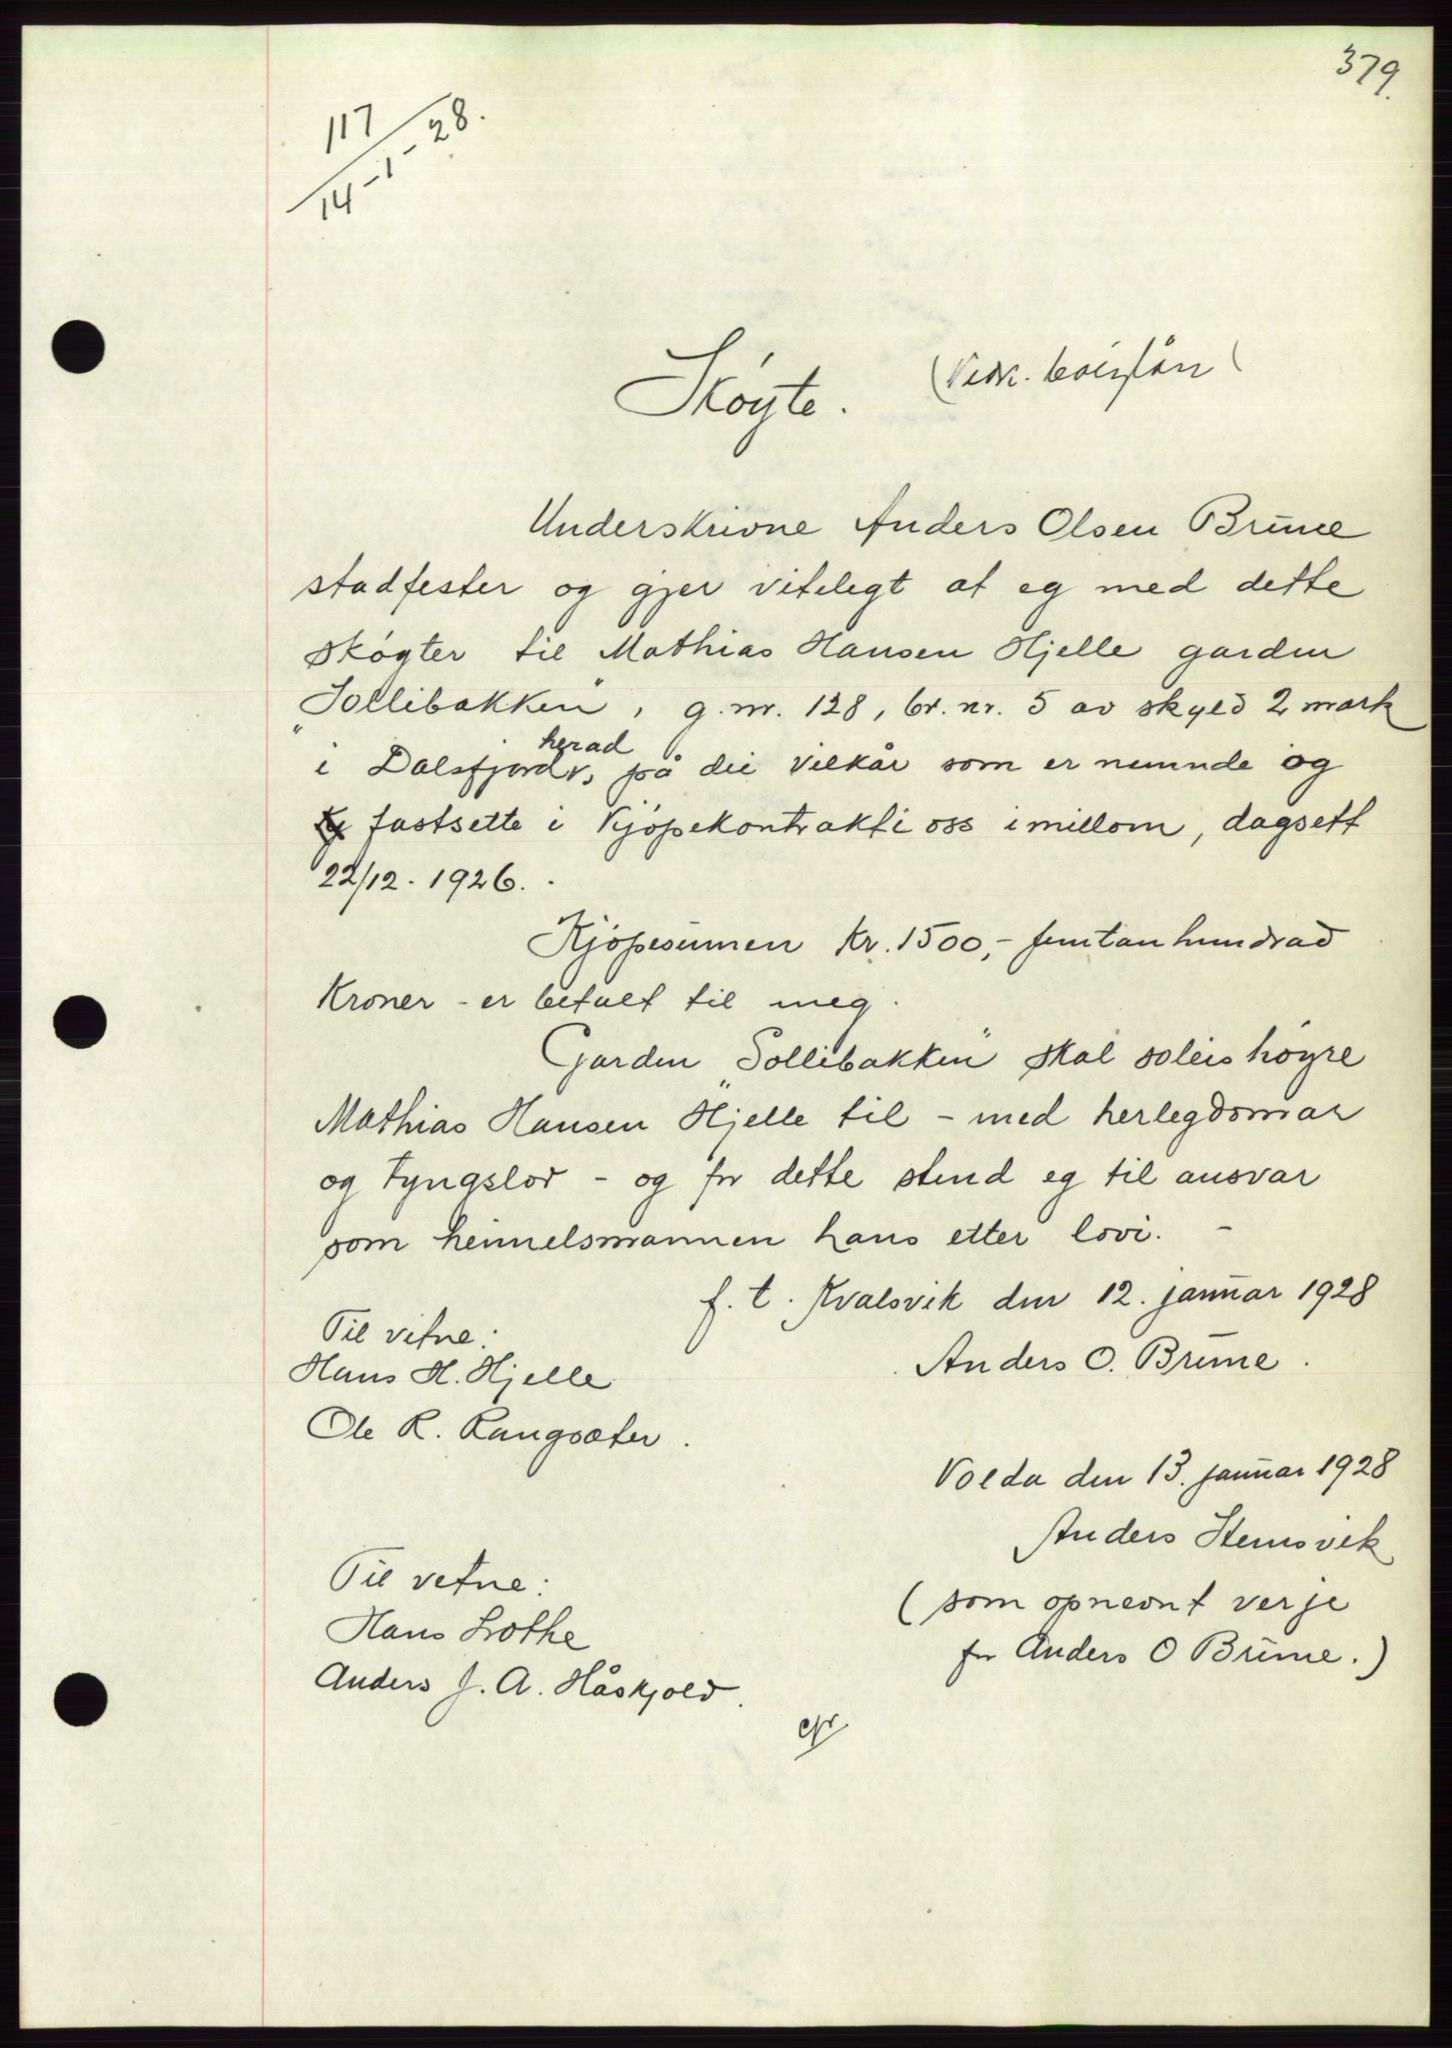 379.
117
14-1-28.
Skøyte.
Underskrivne Anders Olsen Brune
stadfester og gjer vitelegt at eg med dette
skøyter til Mathias Hansen Hjelle garden
"Sollibakken", g. nr. 128, br. nr. 5 av skyld 2 mark
herad
i Dalsfjord, på dei vilkår som er nemnde og
fastsette i Kjøpekontrakti oss imillom, dagsett
22/12. 1926.
Kjøpesumen kr. 1500,- femtanhundrad
Kroner - er betalt til meg.
Garden "Sollibakken" skal soleis høyre
Mathias Hansen Hjelle til - med herlegdomar
og tyngslor - og for dette stend eg til ansvar
som heimelsmannen hans etter lovi. -
f. t. Kvalsvik den 12. januar 1928
Til vitne:
Anders O. Brune.
Hans H. Hjelle
Ole R. Rangsæter.
Volda den 13. januar 1928
Anders Stemsvik
Til vitne:
(som opnevnt verje
Hans Lothe
for Anders O Brune.)
Anders J. A. Håskjold.